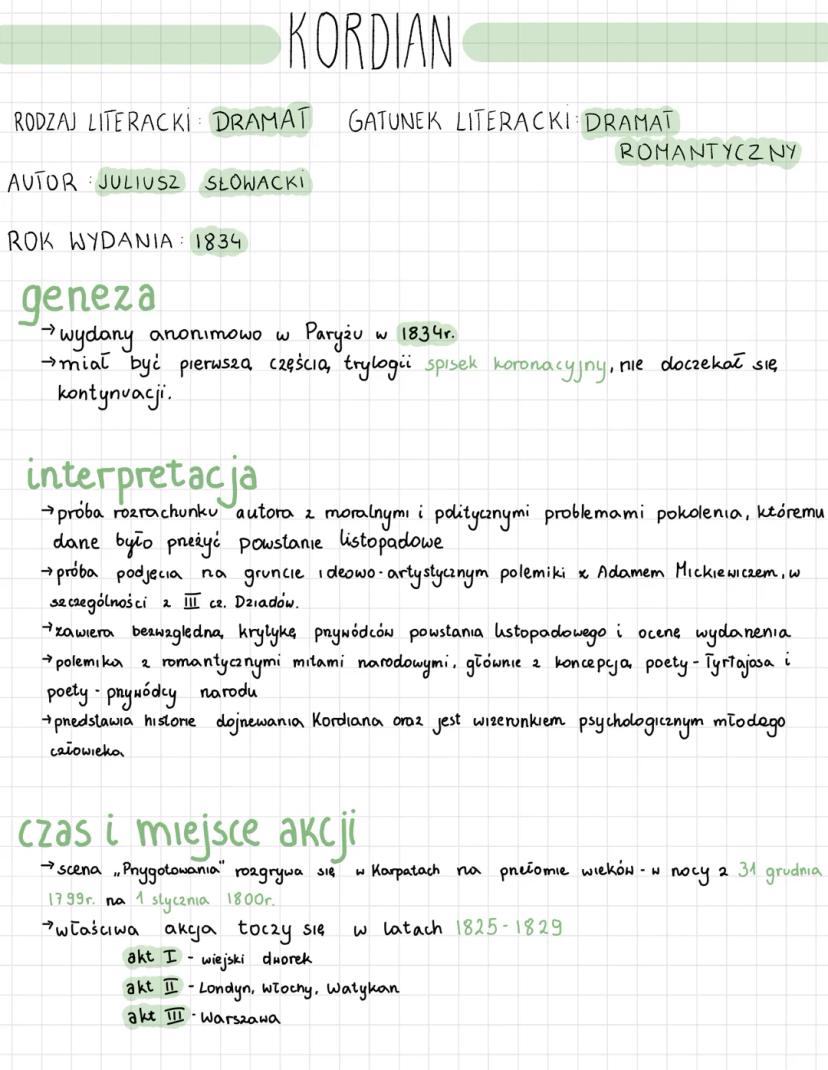 KORDIAN
RODZAJ LITERACKI: DRAMAT GATUNEK LITERACKI: DRAMAT
ROMANTYCZNY
AUTOR: JULIUSZ SŁOWACKI
ROK WYDANIA: 1834
geneza
→ wydany anonimowo w Paryżu w 1834r.
→ miał być pierwszą częścią trylogii spisek koronacyjny, nie doczekał się
kontynuacji.
interpretacja
→ próba rozrachunku autora z moralnymi i politycznymi problemami pokolenia, któremu
dane było przeżyć powstanie listopadowe
→ próba podjęcia na gruncie ideowo-artystycznym polemiki z Adamem Mickiewiczem, w
szczególności z III cz. Dziadów.
→ zawiera bezwzględną krytykę przywódców powstania listopadowego i ocenę wydarzenia
→ polemika z romantycznymi mitami narodowymi, głównie z koncepcją poety-Tyrtajosa i
poety-przywódcy narodu
→ przedstawia historię dojrzewania Kordiana oraz jest wizerunkiem psychologicznym młodego
człowieka
czas i miejsce akcji
→ scena „Przygotowania" rozgrywa się w Karpatach na przełomie wieków - w nocy z 31 grudnia
1799r. na 1 stycznia 1800r.
→ właściwa akcja toczy się w latach 1825-1829
akt I - wiejski dworek
akt II - Londyn, Włochy, Watykan
akt III - Warszawa